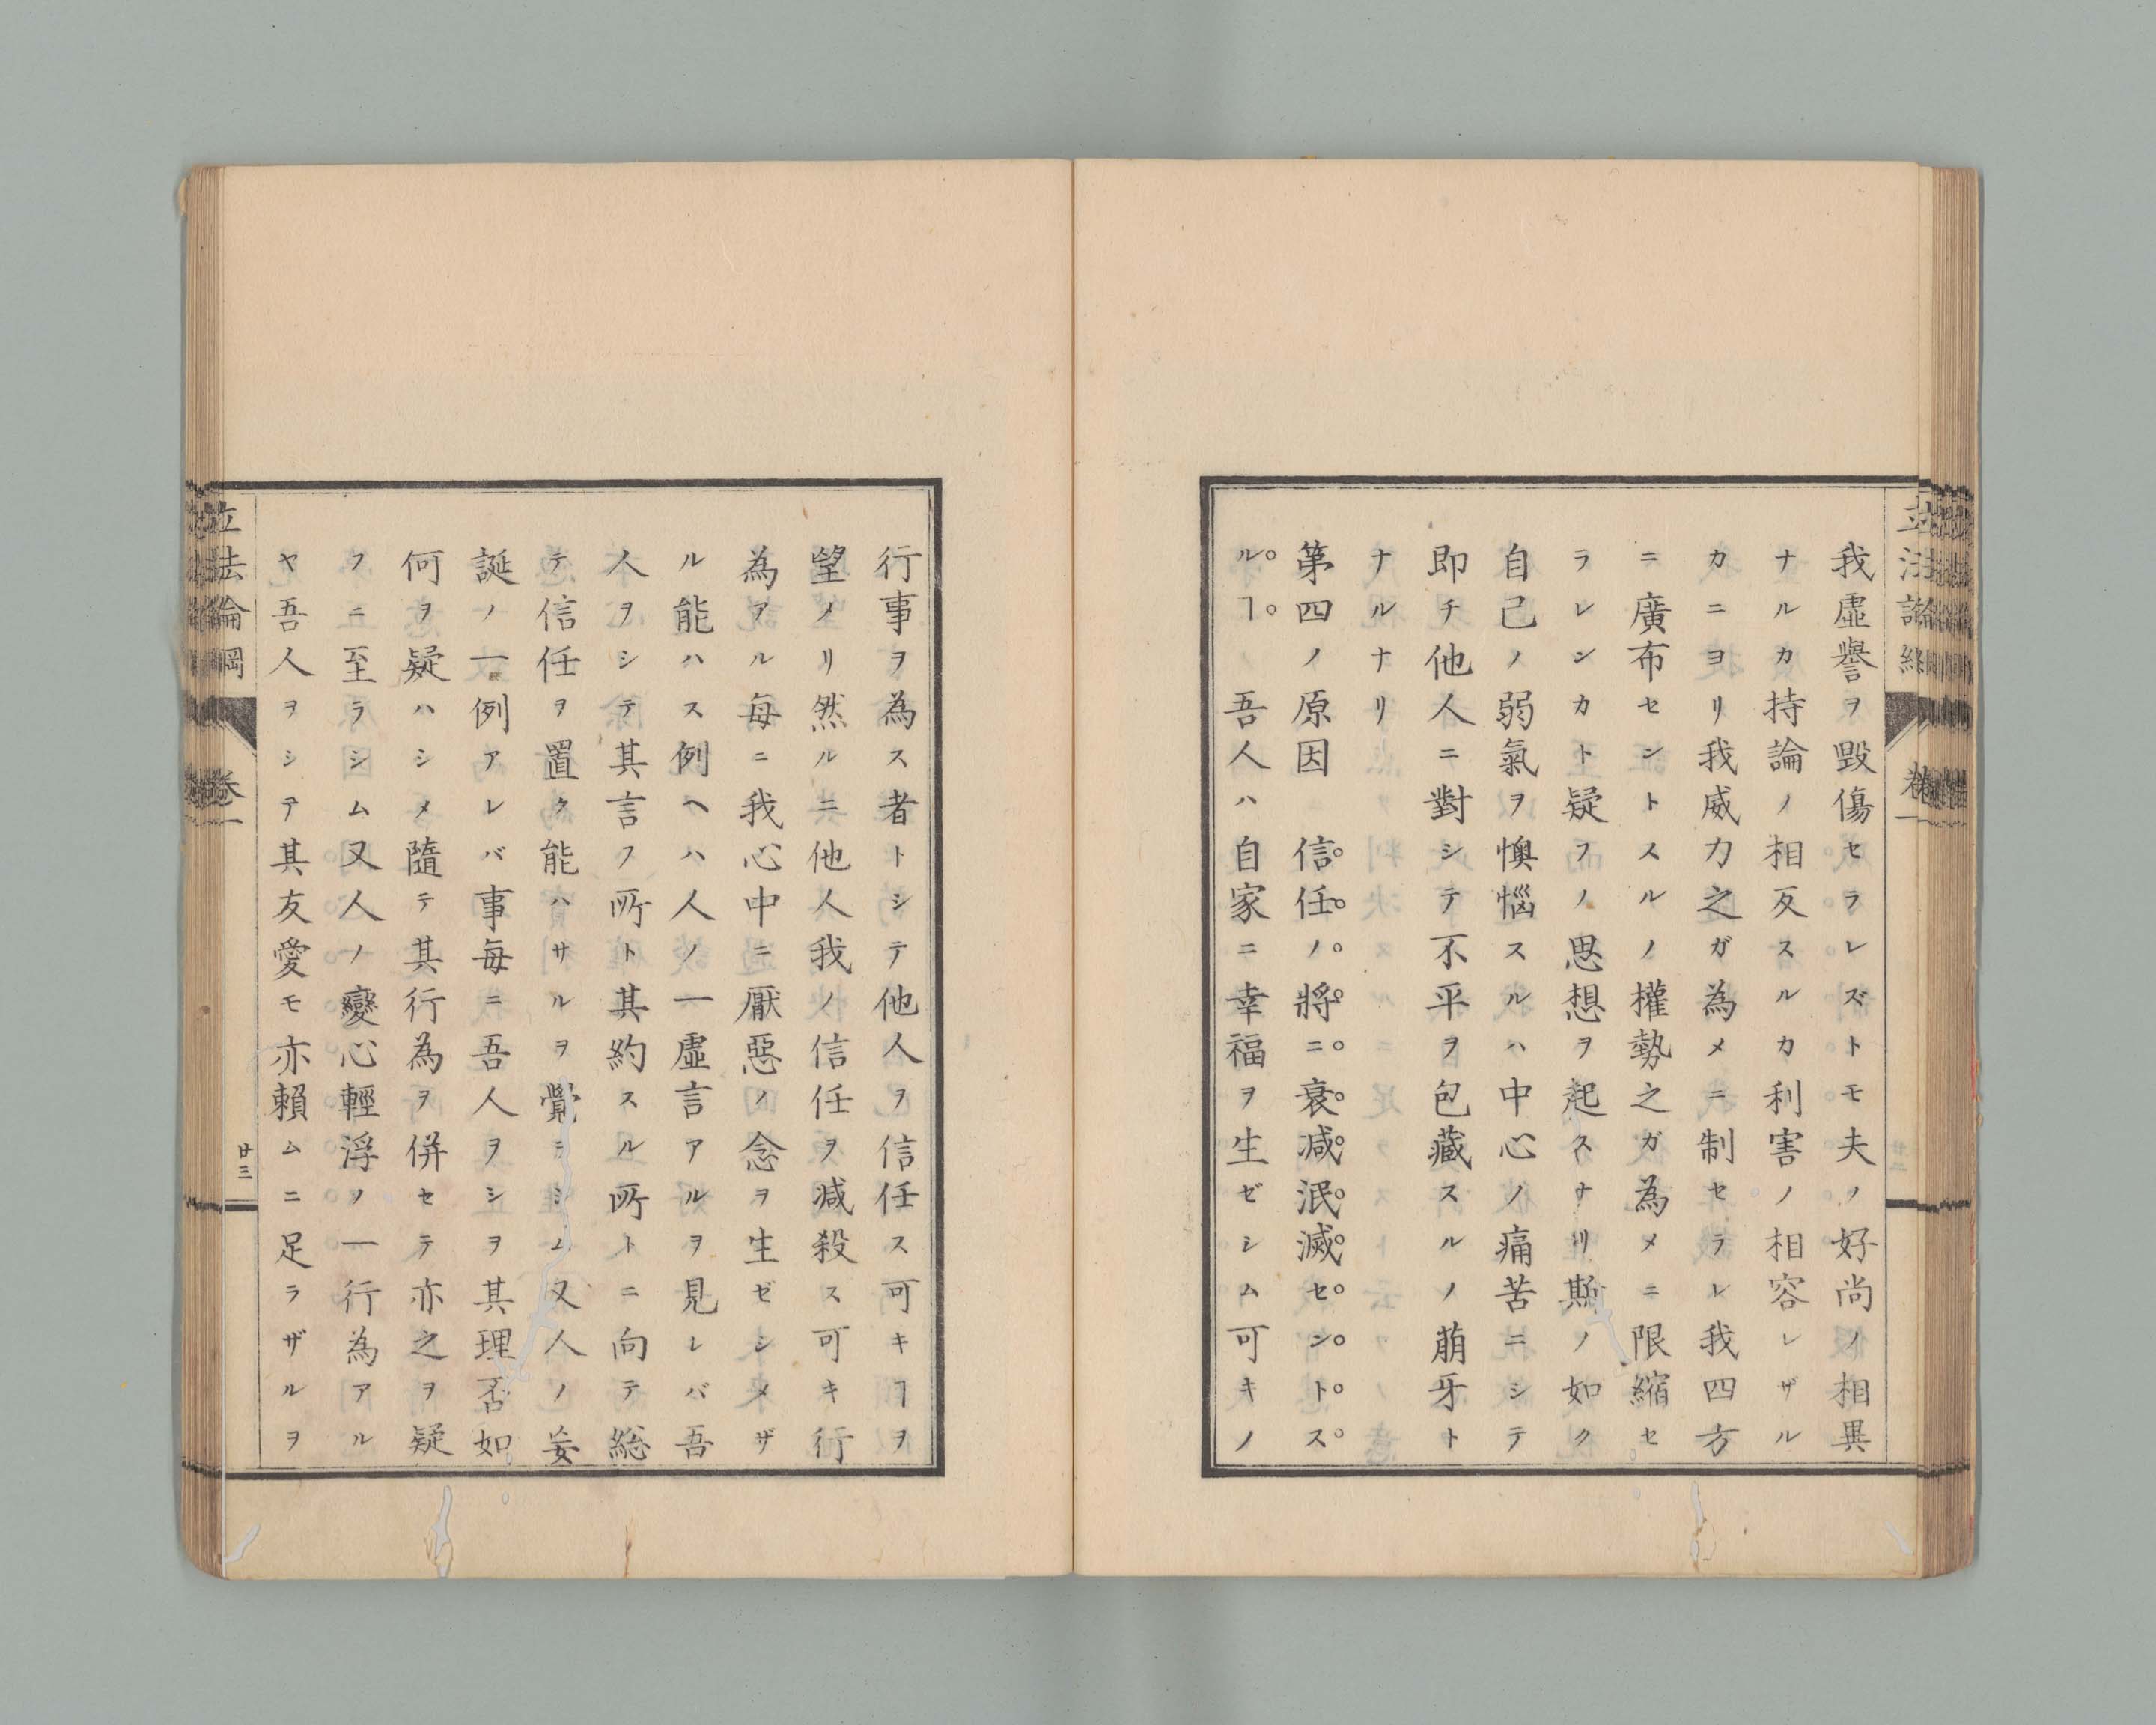 我虛譽ヲ毀傷セラレズトモ夫ノ好尚ノ相異
ナルカ持論ノ相反スルカ利害ノ相容レザル
カニヨリ我威力之ガ為メニ制セラレ我四方
ニ廣布セントスルノ權勢之ガ為メニ限縮セ
ラレンカト疑フノ思想ヲ起スナリ斯ノ如ク
自己ノ弱氣ヲ懊惱スルハ中心ノ痛苦ニシテ
即チ他人ニ對シテ不平ヲ包藏スルノ萠牙ト
ナルナリ
第四ノ原因 信任ノ將ニ衰减泯滅セントス
ルヿ 吾人ハ自家ニ幸福ヲ生ゼシム可キノ
行事ヲ為ス者トシテ他人ヲ信任ス可キヿヲ
望メリ然ルニ他人我ノ信任ヲ減殺ス可キ行
為アル每ニ我心中ニ厭惡ノ念ヲ生ゼシメザ
ル能ハス例ヘハ人ノ一虛言アルヲ見レバ吾
人ヲシテ其言フ所ト其約スル所トニ向テ総
テ信任ヲ置ク能ハサルヲ覺ヱシム又人ノ妄
誕ノ一例アレバ事每ニ吾人ヲシヲ其理否如
何ヲ疑ハシメ隨テ其行為ヲ併セテ亦之ヲ疑
フニ至ラシム又人ノ變心輕浮ノ一行為アル
ヤ吾人ヲシテ其友愛モ亦賴ムニ足ラザルヲ
立法論綱 卷一
廿三